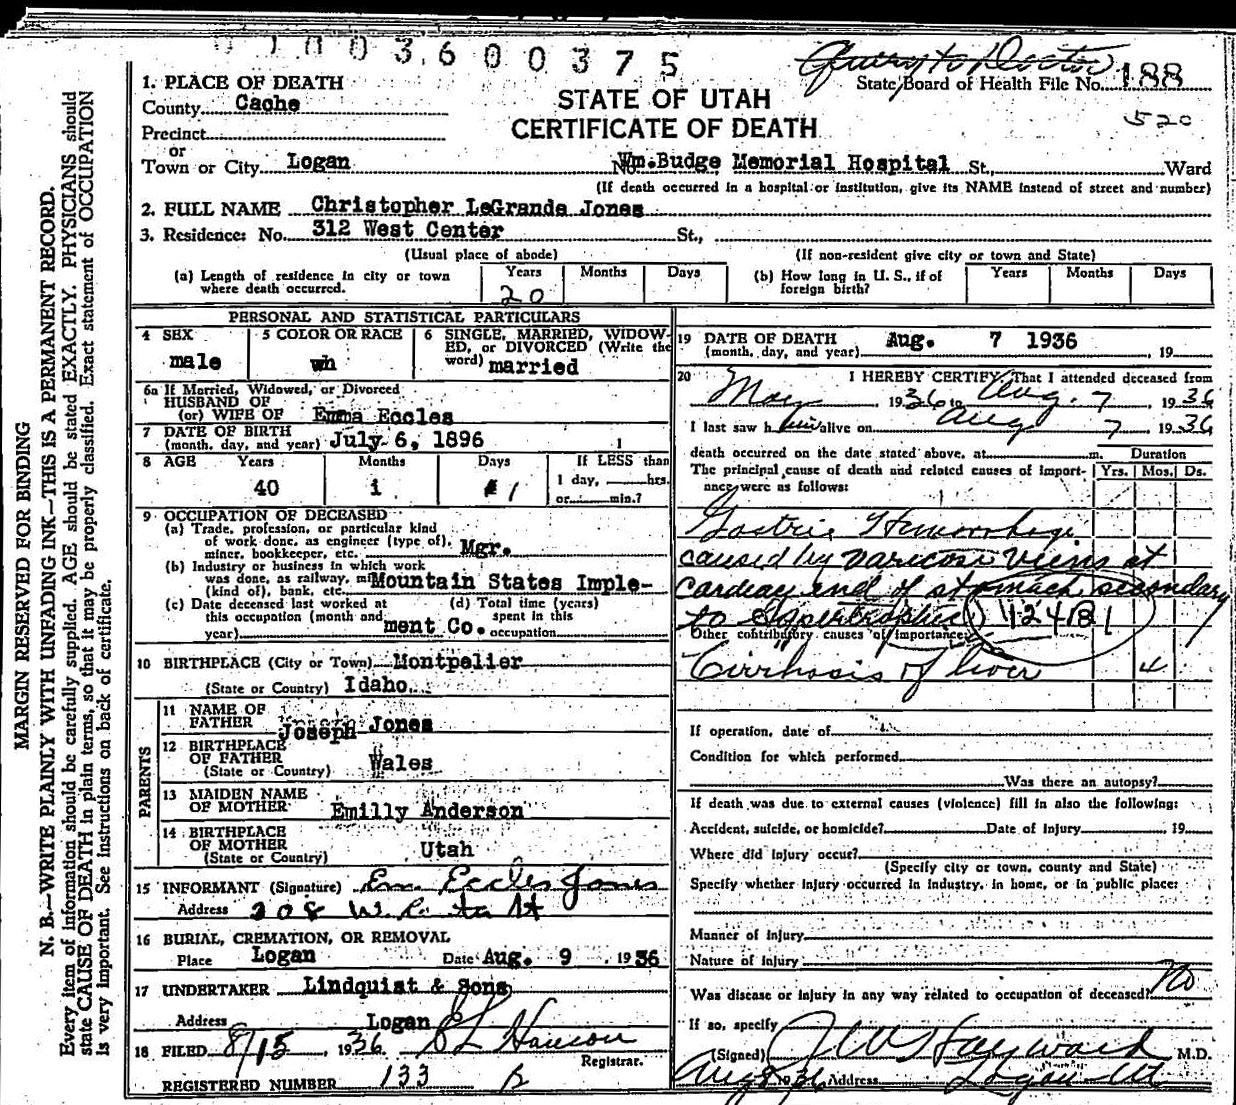 01003600375
Query to Doctor
State Board of Health File No. 188
520
STATE OF UTAH
CERTIFICATE OF DEATH
1. PLACE OF DEATH
County Cache
Precinct
or
Town or City Logan No. Wm. Budge Memorial Hospital St., Ward
(If death occurred in a hospital or institution, give its NAME instead of street and number)
2. FULL NAME Christopher LeGrande Jones
3. Residence: No. 312 West Center St.,
(Usual place of abode) (If non-resident give city or town and State)
(a) Length of residence in city or town where death occurred. Years 20 Months Days
(b) How long in U. S., if of foreign birth? Years Months Days
PERSONAL AND STATISTICAL PARTICULARS
4 SEX male
5 COLOR OR RACE wh
6 SINGLE, MARRIED, WIDOWED, or DIVORCED (Write the word) married
6a If Married, Widowed, or Divorced
HUSBAND OF
(or) WIFE OF Emma Eccles
7 DATE OF BIRTH
(month, day, and year) July 6, 1896
8 AGE Years 40 Months 1 Days 1
If LESS than 1 day, hrs. or min.?
9 OCCUPATION OF DECEASED
(a) Trade, profession, or particular kind
of work done, as engineer (type of),
miner, bookkeeper, etc. Mgr.
(b) Industry or business in which work
was done, as railway, m
(kind of), bank, etc. Mountain States Imple-
(c) Date deceased last worked at
this occupation (month and
year)
(d) Total time (years)
spent in this
occupation
ment Co.
10 BIRTHPLACE (City or Town) Montpelier
(State or Country) Idaho.
PARENTS
11 NAME OF
FATHER Joseph Jones
12 BIRTHPLACE
OF FATHER
(State or Country) Wales
13 MAIDEN NAME
OF MOTHER Emilly Anderson
14 BIRTHPLACE
OF MOTHER
(State or Country) Utah
15 INFORMANT (Signature) Em. Eccles Jones
Address 208 W. St
16 BURIAL, CREMATION, OR REMOVAL
Place Logan Date Aug. 9, 1936
17 UNDERTAKER Lindquist & Sons
Address Logan
18 FILED 8/15, 1936 Hanson
Registrar.
REGISTERED NUMBER 133
19 DATE OF DEATH
(month, day, and year) Aug. 7 1936, 19
20 I HEREBY CERTIFY, That I attended deceased from
May, 1936 to Aug. 7, 1936
I last saw him alive on Aug 7, 1936
death occurred on the date stated above, at m. Duration
The principal cause of death and related causes of importance were as follows: Yrs. Mos. Ds.
Gastric Hemorrhage
caused by varicose veins at
cardiac end of stomach secondary
to Hypertrophic 124B1
Other contributory causes of importance:
Cirrhosis of liver 4
If operation, date of
Condition for which performed
Was there an autopsy?
If death was due to external causes (violence) fill in also the following:
Accident, suicide, or homicide? Date of Injury 19
Where did injury occur?
(Specify city or town, county and State)
Specify whether injury occurred in industry, in home, or in public place:
Manner of Injury
Nature of Injury
Was disease or injury in any way related to occupation of deceased? No
If so, specify
(Signed) J W Hayward M.D.
Aug 8 36 Address Logan Ut
MARGIN RESERVED FOR BINDING
N. B.—WRITE PLAINLY WITH UNFADING INK—THIS IS A PERMANENT RECORD.
Every item of information should be carefully supplied. AGE should be stated EXACTLY. PHYSICIANS should
state CAUSE OF DEATH in plain terms, so that it may be properly classified. Exact statement of OCCUPATION
is very important. See instructions on back of certificate.